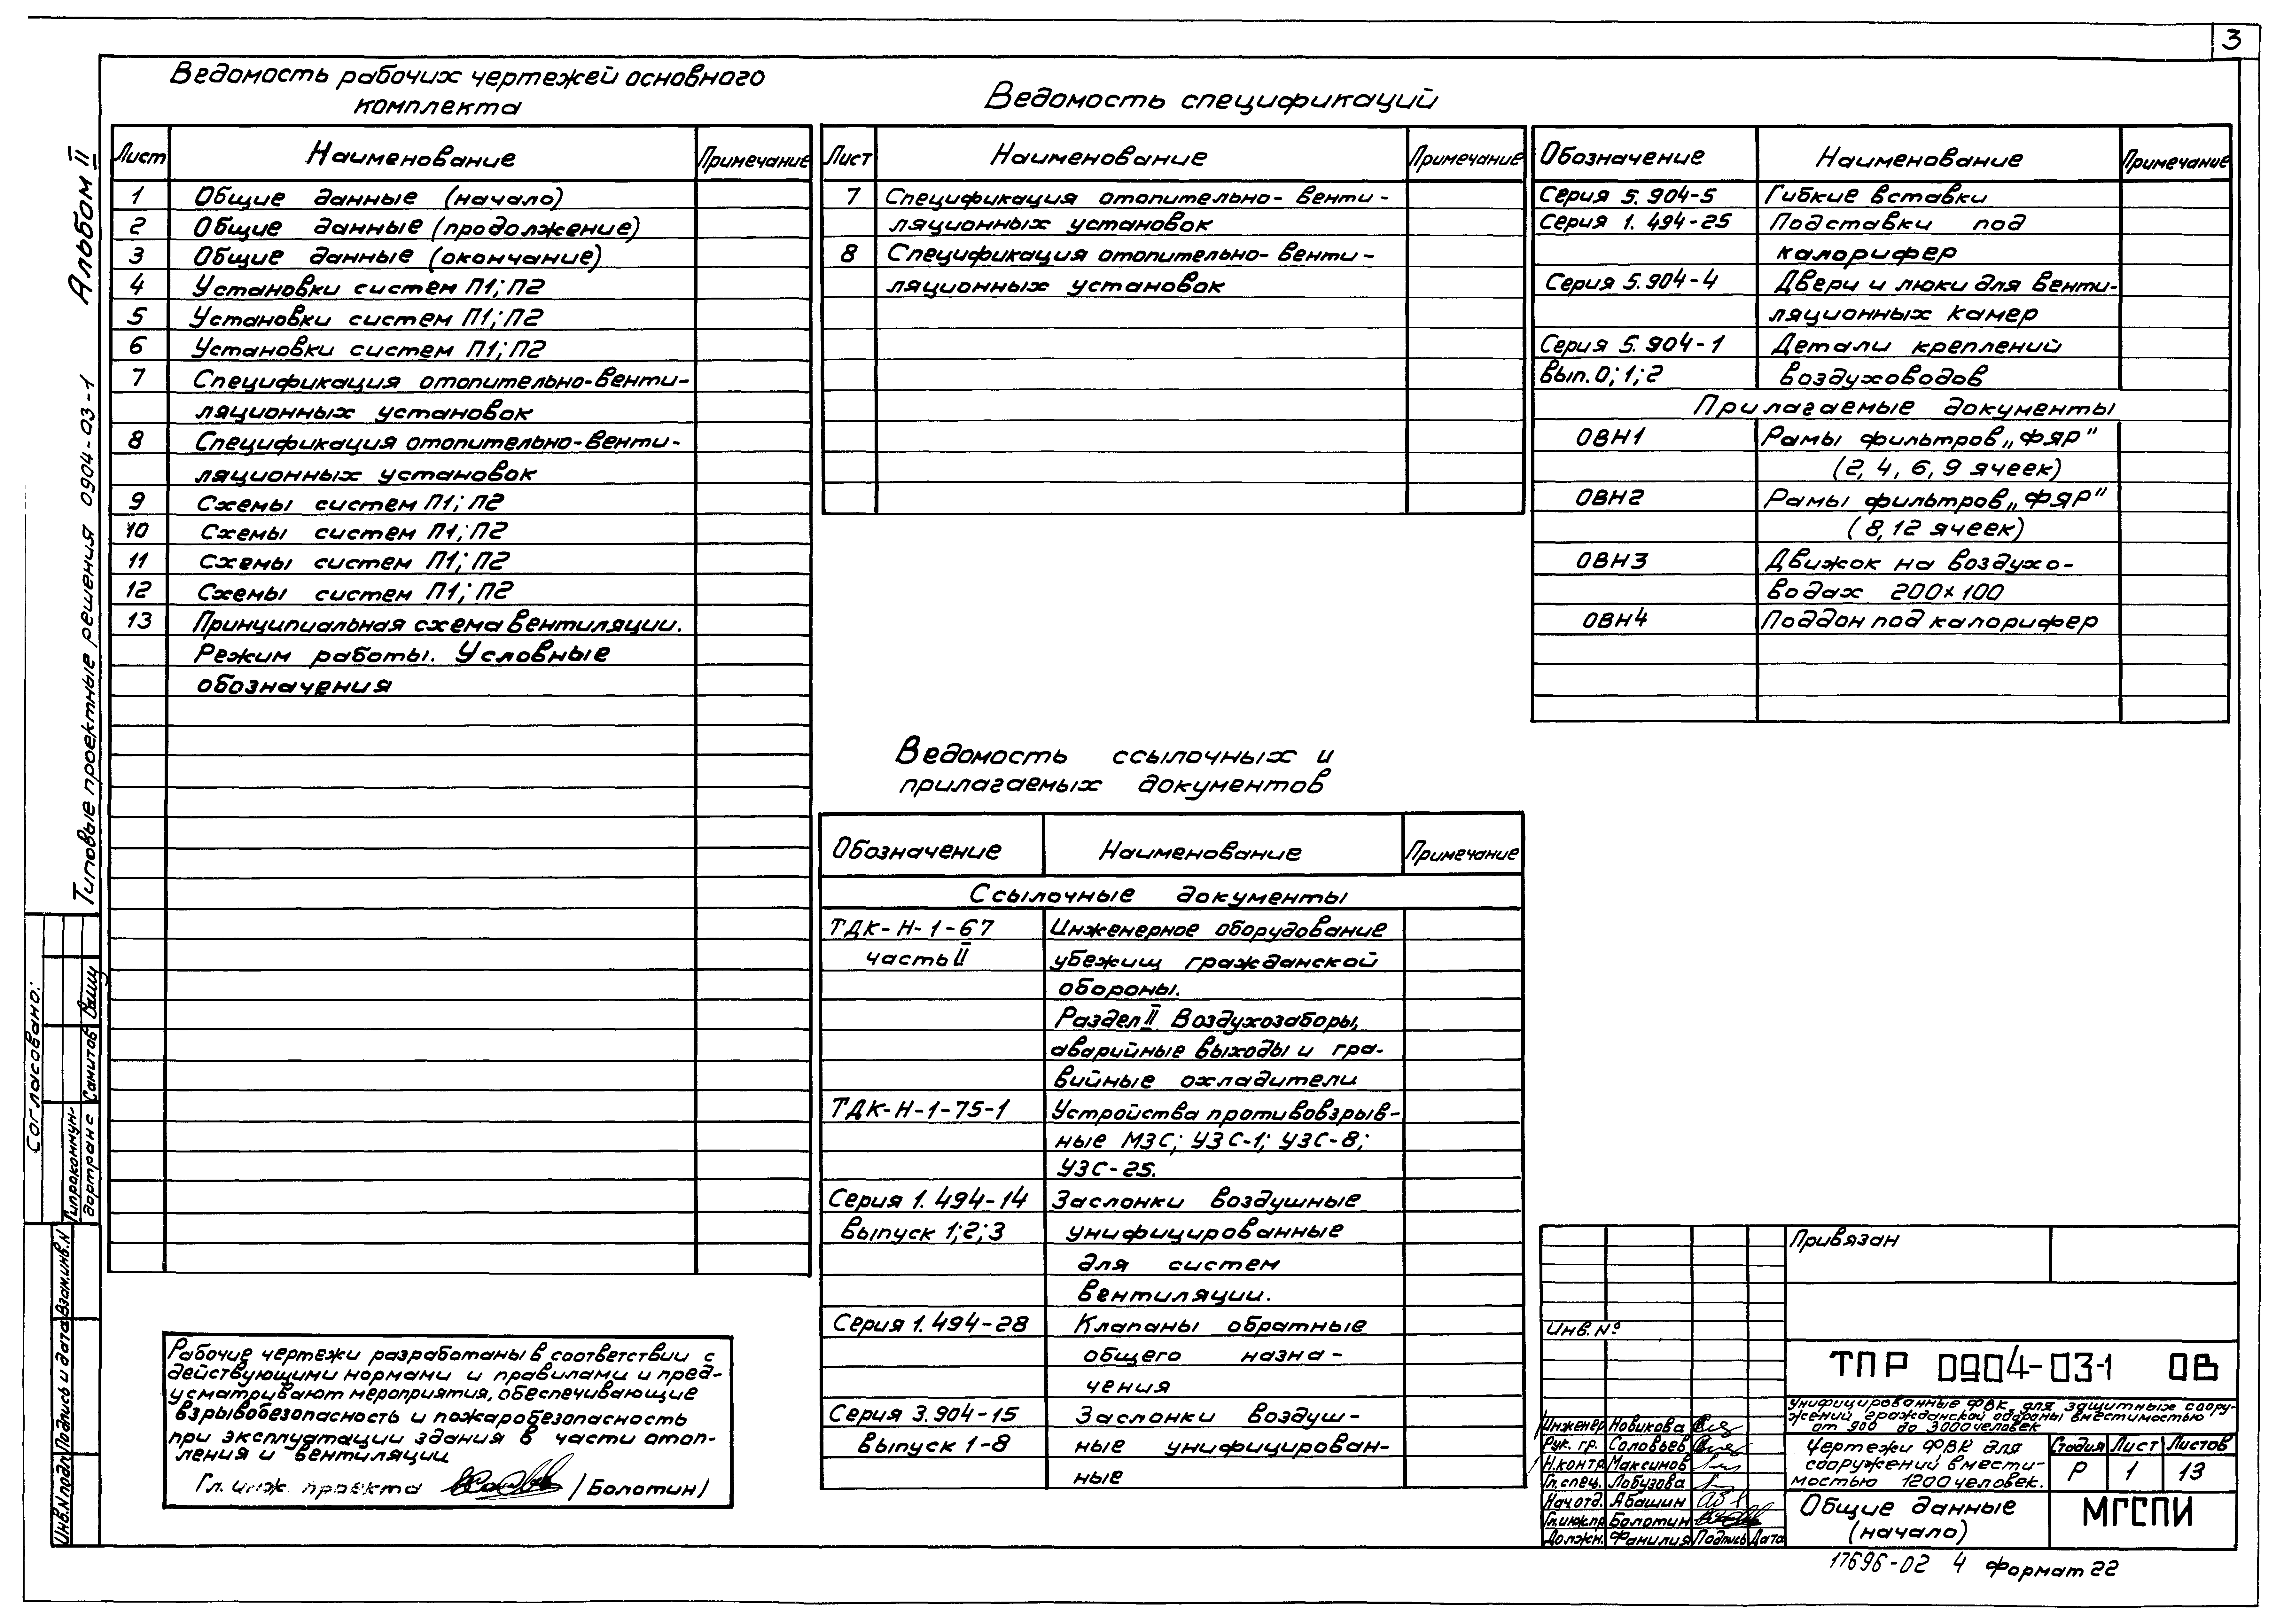 3
Альбом II
Типовые проектные решения 0904-03-1
Ведомость рабочих чертежей основного
комплекта
Лист Наименование Примечание
1 Общие данные (начало)
2 Общие данные (продолжение)
3 Общие данные (окончание)
4 Установки систем П1; П2
5 Установки систем П1; П2
6 Установки систем П1; П2
7 Спецификация отопительно-венти-
ляционных установок
8 Спецификация отопительно-венти-
ляционных установок
9 Схемы систем П1; П2
10 Схемы систем П1; П2
11 Схемы систем П1; П2
12 Схемы систем П1; П2
13 Принципиальная схема вентиляции.
Режим работы. Условные
обозначения
Рабочие чертежи разработаны в соответствии с
действующими нормами и правилами и пред-
усматривают мероприятия, обеспечивающие
взрывобезопасность и пожаробезопасность
при эксплуатации здания в части отоп-
ления и вентиляции
Гл. инж. проекта /Болотин/
Ведомость спецификаций
Лист Наименование Примечание
7 Спецификация отопительно-венти-
ляционных установок
8 Спецификация отопительно-венти-
ляционных установок
Ведомость ссылочных и
прилагаемых документов
Обозначение Наименование Примечание
Ссылочные документы
ТДК-Н-1-67 Инженерное оборудование
часть II убежищ гражданской
обороны.
Раздел II Воздухозаборы,
аварийные выходы и гра-
вийные охладители
ТДК-Н-1-75-1 Устройства противовзрыв-
ные МЗС; УЗС-1; УЗС-8;
УЗС-25.
Серия 1.494-14 Заслонки воздушные
Выпуск 1;2;3 унифицированные
для систем
вентиляции.
Серия 1.494-28 Клапаны обратные
общего назна-
чения
Серия 3.904-15 Заслонки воздуш-
выпуск 1-8 ные унифицирован-
ные
Обозначение Наименование Примечание
Серия 5.904-5 Гибкие вставки
Серия 1.494-25 Подставки под
калорифер
Серия 5.904-4 Двери и люки для венти-
ляционных камер
Серия 5.904-1 Детали креплений
вып. 0; 1; 2 воздуховодов
Прилагаемые документы
ОВН1 Рамы фильтров „ФЯР"
(2, 4, 6, 9 ячеек)
ОВН2 Рамы фильтров „ФЯР"
(8, 12 ячеек)
ОВН3 Движок на воздухо-
водах 200×100
ОВН4 Поддон под калорифер
Согласовано:
Гипрокоммун-
дортранс
Санитов
Взам.инв.N
Подпись и дата
Инв.N подл.
Привязан
Инв.№
ТПР 0904-03-1 ОВ
Унифицированные ФВК для защитных соору-
жений гражданской обороны вместимостью
от 900 до 3000 человек
Инженер Новикова
Рук. гр. Соловьев
Н.контр. Максимов
Гл.спец. Лобузова
Нач.отд. Абашин
Гл.инж.пр. Болотин
Должн. Фамилия Подпись Дата
Чертежи ФВК для
сооружений вмести-
мостью 1200 человек.
Стадия Лист Листов
Р 1 13
Общие данные
(начало)
МГСПИ
17696-02 4 Формат 22